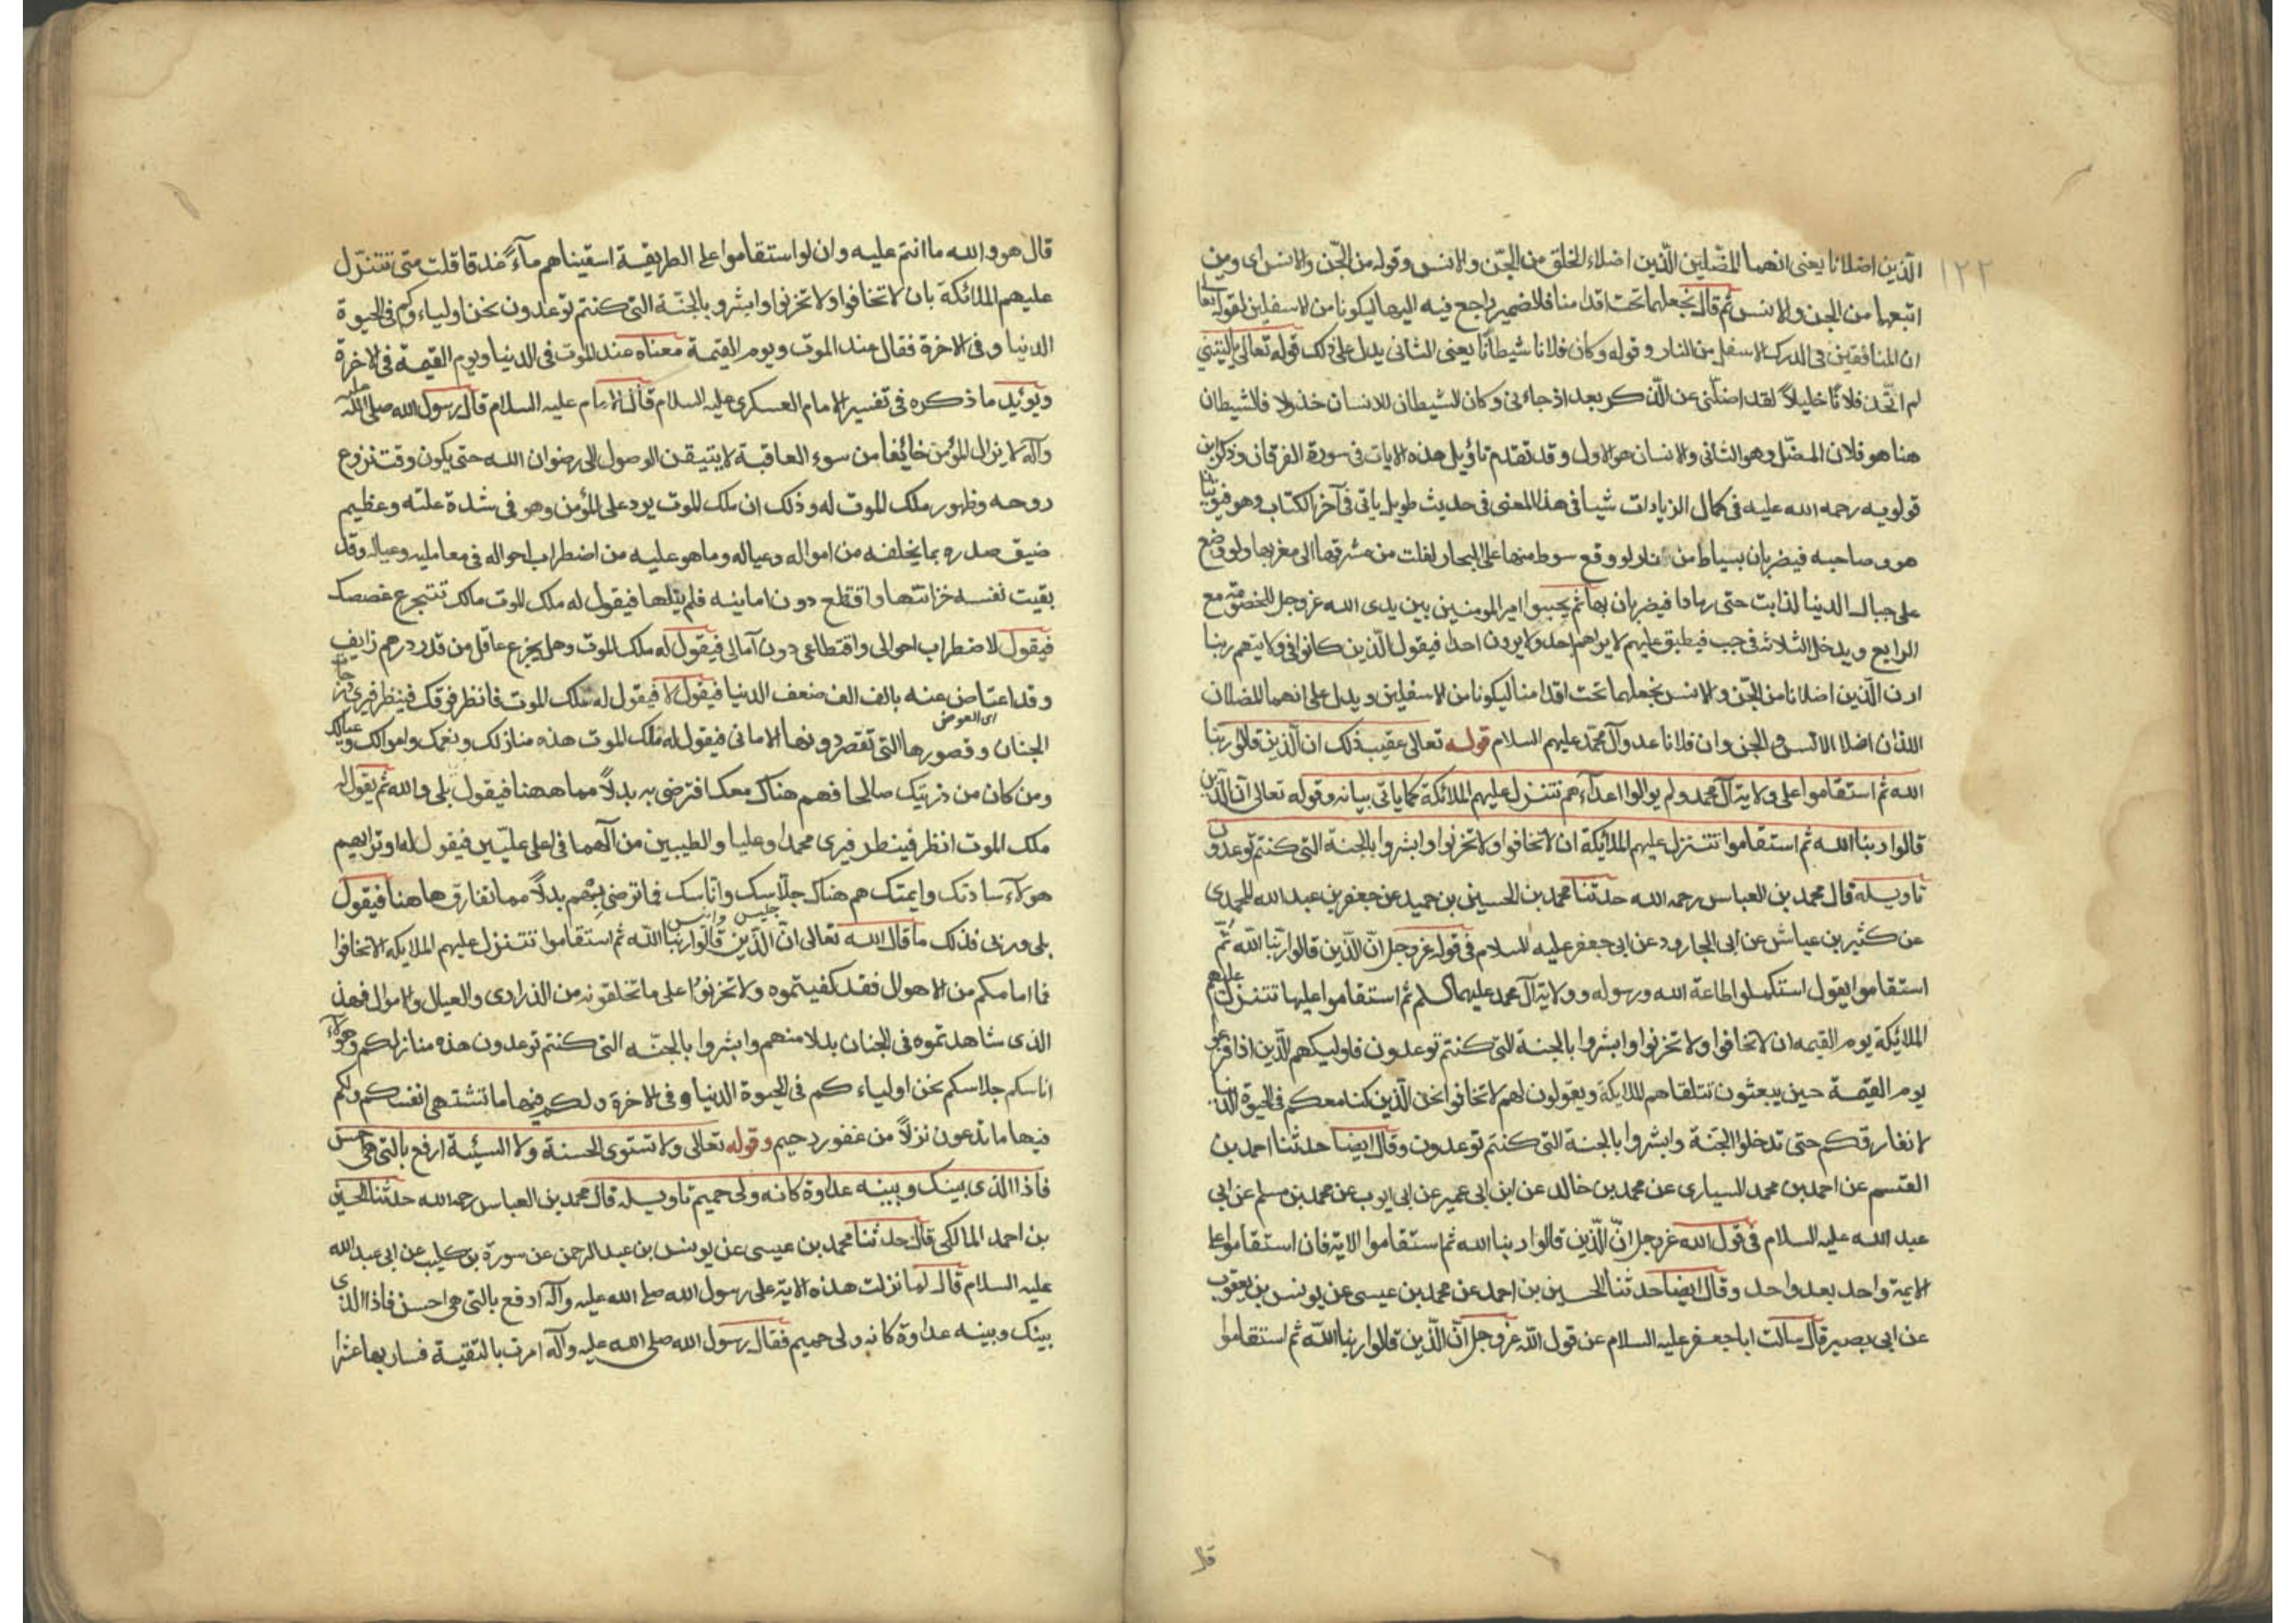 ١٢٢
الّذين اضلانا يعنى انهما المضّلين الّذين اضلاء الخلق من الجّن والانس وقوله من الجّن والانس اى ومن
اتبعهما من الجن والانس ثم قال نجعلهما تحت اقدامنا فلاضمير راجع فيه اليهما ليكونا من الاسفلين لقوله تعا
ان المنافقين فى الدرك الاسفل من النار وقوله وكان فلانا شيطانًا يعنى الثانى يدل على ذلك قوله تعالى يا ليتنى
لم اتّخذ فلانًا خليلاً لقد اضلّنى عن الذّكر بعد اذ جاءنى وكان الشيطان للانسان خذولا فالشيطان
هنا هو فلان المضّل وهو الثانى والانسان هو الاول وقد تقدم تاؤيل هذه الايات فى سورة الفرقان وذكر ابن
قولويه رحمه الله عليه فى كمال الزيادات شيا فى هذا المعنى فى حديث طويل ياتى فى آخر الكتاب وهو فيؤتيا
هو وصاحبه فيضربان بسياط من نار لو وقع سوط منها على البحار لغلت من مشرقها الى مغربها ولو وضع
على جبال الدنيا لذابت حتى رمادا فيضربان بها ثم يجيبوا امير المومنين بين يدى الله عز وجل للخصومة مع
الرابع ويدخل الثلاثة فى جب فيطبق عليهم لا يراهم احد ولا يرون احدا فيقول الّذين كانوا فى ولايتهم ربنا
ارن الّذين اضلانا من الجّن والانس نجعلهما تحت اقدامنا ليكونا من الاسفلين ويدل على انهما المضلان
اللذان اضلا الانس والجن وان فلانا عدو آل محمّد عليهم السلام قوله تعالى عقيب ذلك ان الّذين قالوا ربنا
الله ثم استقاموا على ولاية آل محمد ولم يوالوا اعدآءهم تتنزل عليهم الملائكة كما ياتى بيانه وقوله تعالى ان الّذين
قالوا ربنا الله ثم استقاموا تتنزل عليهم الملائكة ان لا تخافوا ولا تحزنوا وابشروا بالجنة التى كنتم توعدون
تاويله قال محمد بن العباس رحمه الله حدثنا محمد بن الحسين بن حميد عن جعفر بن عبد الله المحمدى
عن كثير بن عياش عن ابى الجارود عن ابى جعفر عليه السلام فى قوله عز وجل انّ الّذين قالوا ربّنا اللّه ثُمّ
استقاموا يقول استكملوا طاعة الله ورسوله وولاية آل محمد عليهم السلم ثم استقاموا عليها تتنزل عليهم
الملائيكة يوم القيمه ان لا تخافوا ولا تحزنوا وابشروا بالجنة التى كنتم توعدون فاوليكهم الّذين اذا فزعوا
يوم القيمة حين يبعثون تتلقاهم الملايكة ويقولون لهم لا تخافوا نحن الّذين كنا معكم فى الحيوة الدنيا
لا نفارقكم حتى تدخلوا الجنة وابشروا بالجنة التى كنتم توعدون وقال ايضا حدثنا احمد بن
القسم عن احمد بن محمد السيارى عن محمد بن خالد عن ابن ابى عمير عن ابى ايوب عن محمد بن مسلم عن ابى
عبد الله عليه السلام فى قول الله عز وجل انّ الّذين قالوا ربنا الله ثم استقاموا الاية فان استقاموا على
الايمة واحد بعد واحد وقال ايضا حدثنا الحسين بن احمد عن محمد بن عيسى عن يونس بن يعقوب
عن ابى بصير قال سالت ابا جعفر عليه السلام عن قول اللّه عز وجل انّ الّذين قالوا ربنا اللّه ثم استقاموا
قال
قال هو والله ما انتم عليه وان لو استقاموا على الطريقة اسقيناهم مآءً غدقا قلت متى تتنزّل
عليهم الملائكة بان لا تخافوا ولا تحزنوا وابشرو بالجنّة التى كنتم توعدون نحن اولياءوكم فى الحيوة
الدنيا وفى الاخرة فقال عند الموت ويوم القيمة معناه عند الموت فى الدنيا ويوم القيمة فى الاخرة
ويؤيد ما ذكره فى تفسير الامام العسكرى عليه السلام قال الامام عليه السلام قال رسول الله صلى الله عليه
وآله لا يزال المؤمن خائفا من سوء العاقبة لا يتيقن الوصول الى رضوان الله حتى يكون وقت نزوع
روحه وظهور ملك الموت له وذلك ان ملك الموت يرد على المؤمن وهو فى شدة علته وعظيم
ضيق صدره بما يخلفه من امواله وعياله وما هو عليه من اضطراب احواله فى معامليه وعياله وقد
بقيت نفسه خزانتها واقتطع دون امانيه فلم ينلها فيقول له ملك الموت مالك تتجرع غصصك
فيقول لاضطراب احوالى واقتطاعى دون آمالى فيقول له ملك الموت وهل يجزع عاقل من قدر درهم زايف
وقد اعتاض عنه بالف الف ضعف الدنيا فيقول لا فيقول له ملك الموت فانظر فوقك فينظر فيرى درجات
اى العوض
الجنان وقصورها التى تقصر دونها الامانى فيقول له ملك الموت هذه منازلك ونعمك واموالك وعيالك
ومن كان من ذريتك صالحا فهم هناك معك افترضى به بدلاً مما ههنا فيقول بلى والله ثم يقول له
ملك الموت انظر فينظر فيرى محمدا وعليا والطيبين من آلهما فى اعلى علّيين فيقول له اوتراهم
هولآء ساداتك وايمتك هم هناك جلّاسك واناسك فما ترضى بِهْم بدلاً مما تفارق هاهنا فيقول
جليس وانس
بلى وربى فذلك ما قال الله تعالى انّ الّذين قالوا ربّنا اللّه ثم استقاموا تتنزل عليهم الملايكة الا تخافوا
فما امامكم من الاهوال فقد كفيتموه ولا تحزنوا على ما تخلقونه من الذرارى والعيال والاموال فهذا
الذى شاهدتموه فى الجنان بدلا منهم وابشروا بالجنّة التى كنتم توعدون هذه منازلكم وهولاء
اناسكم جلاسكم نحن اولياءكم فى الحيوة الدنيا وفى الاخرة ولكم فيها ما تشتهى انفسكم ولكم
فيها ما تدعون نزلاً من غفور رحيم وقوله تعالى ولا تستوى الحسنة ولا السيئة ارفع بالتى هى احسن
فاذا الذى بينك وبينه عداوة كانه ولى حميم تاويله قال محمد بن العباس رحمه الله حدثنا الحسين
بن احمد المالكى قال حدثنا محمد بن عيسى عن يونس بن عبد الرحمن عن سورة بن كليب عن ابى عبد الله
عليه السلام قال لما نزلت هذه الاية على رسول الله صلى الله عليه وآله ادفع بالتى هى احسن فاذا الذى
بينك وبينه عداوة كانه ولى حميم فقال رسول الله صلى الله عليه وآله امرت بالتقية فسار بها عشرا